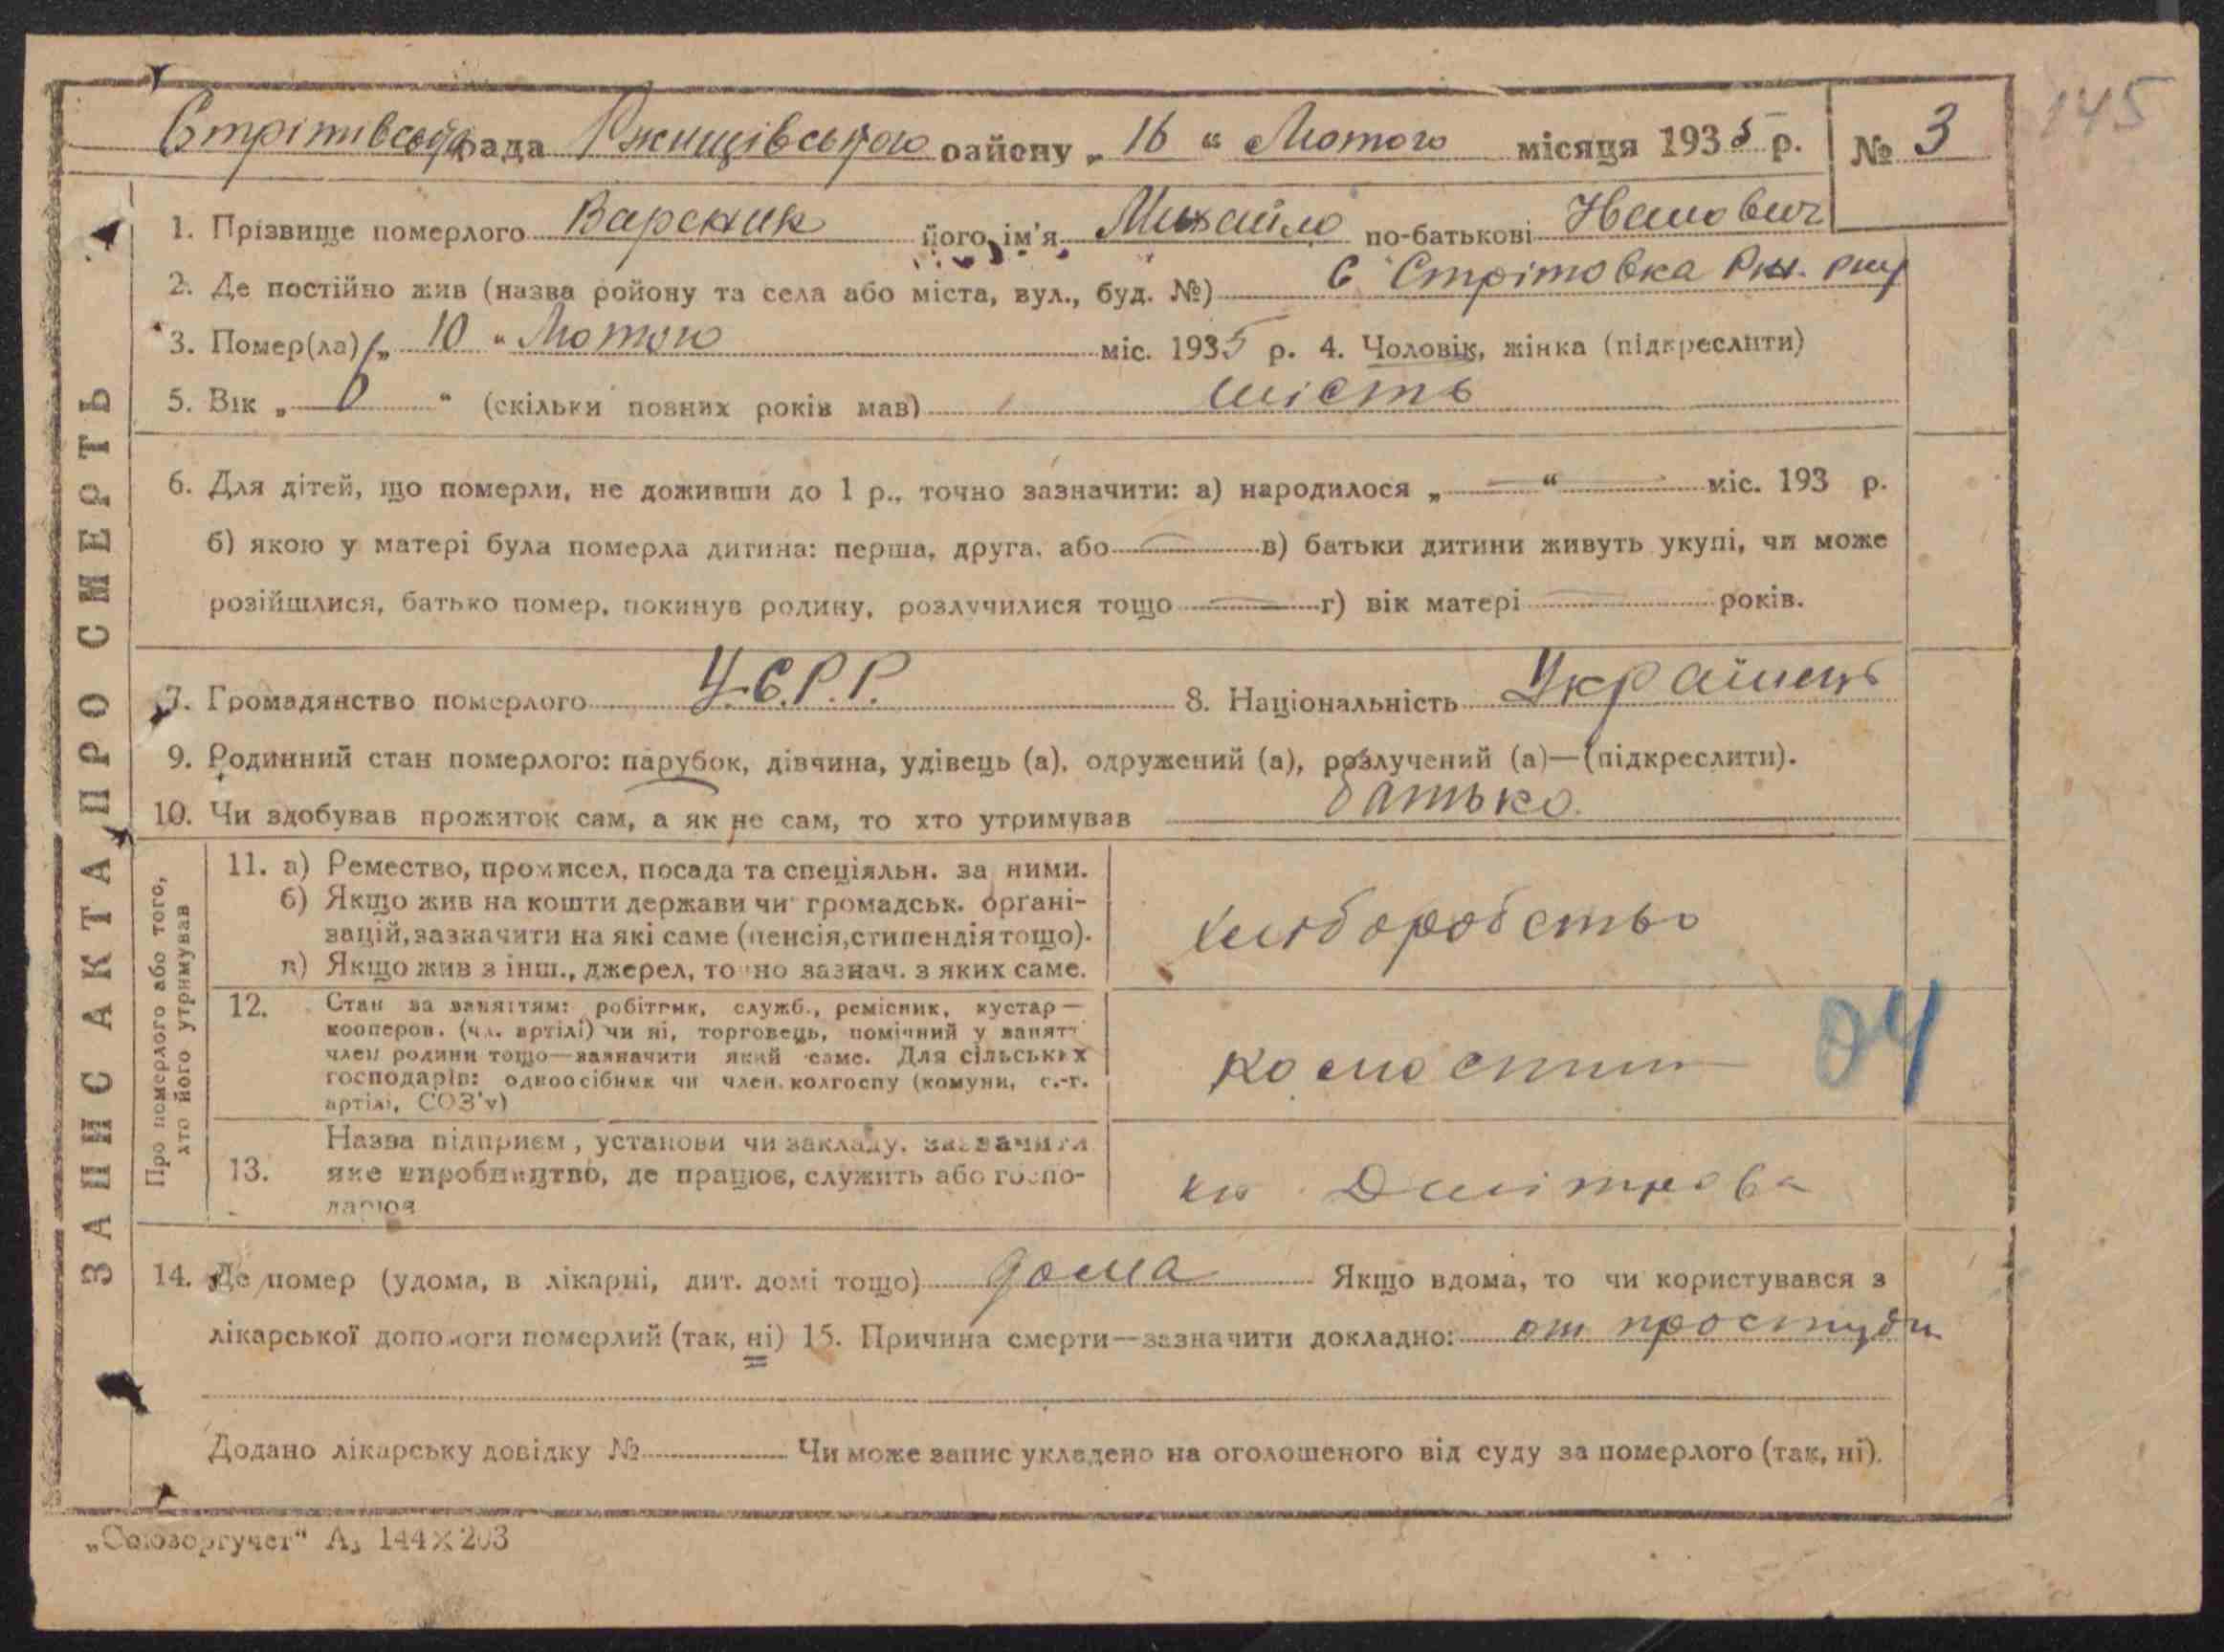 145
Стрітівська рада Ржищівського району „ 16 “ Лютого місяця 1935 р. № 3
1. Прізвище померлого Вареник його ім'я Михайло по-батькові Іванович
2. Де постійно жив (назва ройону та села або міста, вул., буд. №) С Стрітовка Рж.
3. Помер(ла) „ 10 “ Лютого міс. 1935 р. 4. Чоловік, жінка (підкреслити)
5. Вік „ “ (скільки повних років мав) шість
6. Для дітей, що померли, не доживши до 1 р., точно зазначити: а) народилося „ — “ — міс. 193 р.
б) якою у матері була померла дитина: перша, друга, або — в) батьки дитини живуть укупі, чи може
розійшлися, батько помер, покинув родину, розлучилися тощо — г) вік матері — років.
7. Громадянство померлого У.С.Р.Р. 8. Національність Українець
9. Родинний стан померлого: парубок, дівчина, удівець (а), одружений (а), розлучений (а)—(підкреслити).
10. Чи здобував прожиток сам, а як не сам, то хто утримував батько.
Про померлого або того,
хто його утримував
11. а) Ремество, промисел, посада та спеціяльн. за ними.
б) Якщо жив на кошти держави чи громадськ. органі-
зацій, зазначити на які саме (пенсія, стипендія тощо).
в) Якщо жив з інш., джерел, точно зазнач. з яких саме.
хліборобство
12. Стан за заняттям: робітник, служб., ремісник, кустар—
кооперов. (чл. артілі) чи ні, торговець, помічний у занятт
член родини тощо—зазначити який саме. Для сільських
господарів: одноосібник чи член. колгоспу (комуни, с.-г.
артілі, СОЗ'у)
24
13. Назва підприєм, установи чи закладу, зазначити
яке виробництво, де працює, служить або госпо-
дарює
Дмітрова
14. Де помер (удома, в лікарні, дит. домі тощо) дома Якщо вдома, то чи користувався з
лікарської допомоги померлий (так, ні) 15. Причина смерти—зазначити докладно: от простуди
Додано лікарську довідку № Чи може запис укладено на оголошеного від суду за померлого (так, ні).
ЗАПИС АКТА ПРО СМЕРТЬ
„Союзоргучет“ А₅ 144×203